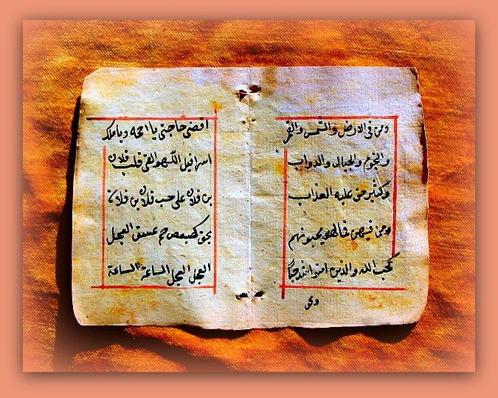 ومن في الارض والشمس والقمر
والنجوم والجبال والدواب
وكثير حق عليه العذاب
ومن فيهن يحبونهم
كحب الله والذين امنوا اشد حبا
اقضي حاجتي يا ويا ملك
قلب فلان
بن فلان على حب فلان بن فلانة
بحق كهيعص حم عسق العجل
العجل العجل الساعة الساعة